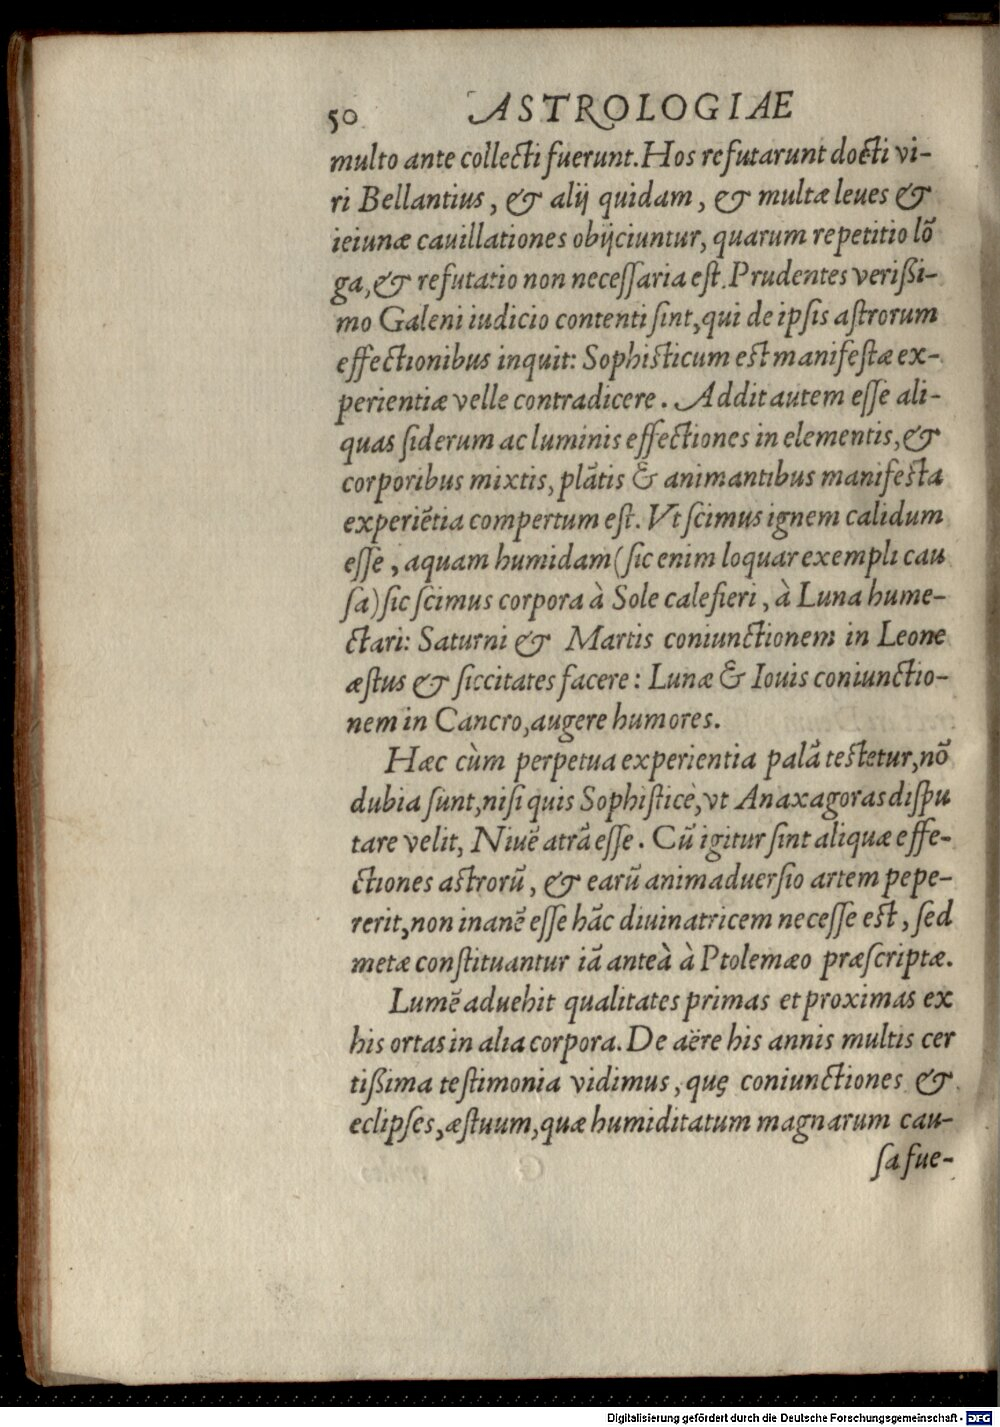 50 ASTROLOGIAE
multo ante collecti fuerunt. Hos refutarunt docti vi-
ri Bellantius, & alij quidam, & multæ leues &
ieiunæ cauillationes obijciuntur, quarum repetitio lõ
ga, & refutatio non necessaria est. Prudentes verißi-
mo Galeni iudicio contenti sint, qui de ipsis astrorum
effectionibus inquit: Sophisticum est manifestæ ex-
perientiæ velle contradicere. Addit autem esse ali-
quas siderum ac luminis effectiones in elementis, &
corporibus mixtis, plãtis & animantibus manifesta
experiẽtia compertum est. Vt scimus ignem calidum
esse, aquam humidam (sic enim loquar exempli cau
sa) sic scimus corpora à Sole calefieri, à Luna hume-
ctari: Saturni & Martis coniunctionem in Leone
æstus & siccitates facere: Lunæ & Iouis coniunctio-
nem in Cancro, augere humores.
Hæc cùm perpetua experientia palã testetur, nõ
dubia sunt, nisi quis Sophisticè, vt Anaxagoras dispu
tare velit, Niuẽ atrã esse. Cũ igitur sint aliquæ effe-
ctiones astrorũ, & earũ animaduersio artem pepe-
rerit, non inanẽ esse hãc diuinatricem necesse est, sed
metæ constituantur iã anteà à Ptolemæo præscriptæ.
Lumẽ aduehit qualitates primas et proximas ex
his ortas in alia corpora. De aëre his annis multis cer
tißima testimonia vidimus, quę coniunctiones &
eclipses, æstuum, quæ humiditatum magnarum cau-
sa fue-
Digitalisierung gefördert durch die Deutsche Forschungsgemeinschaft - DFG